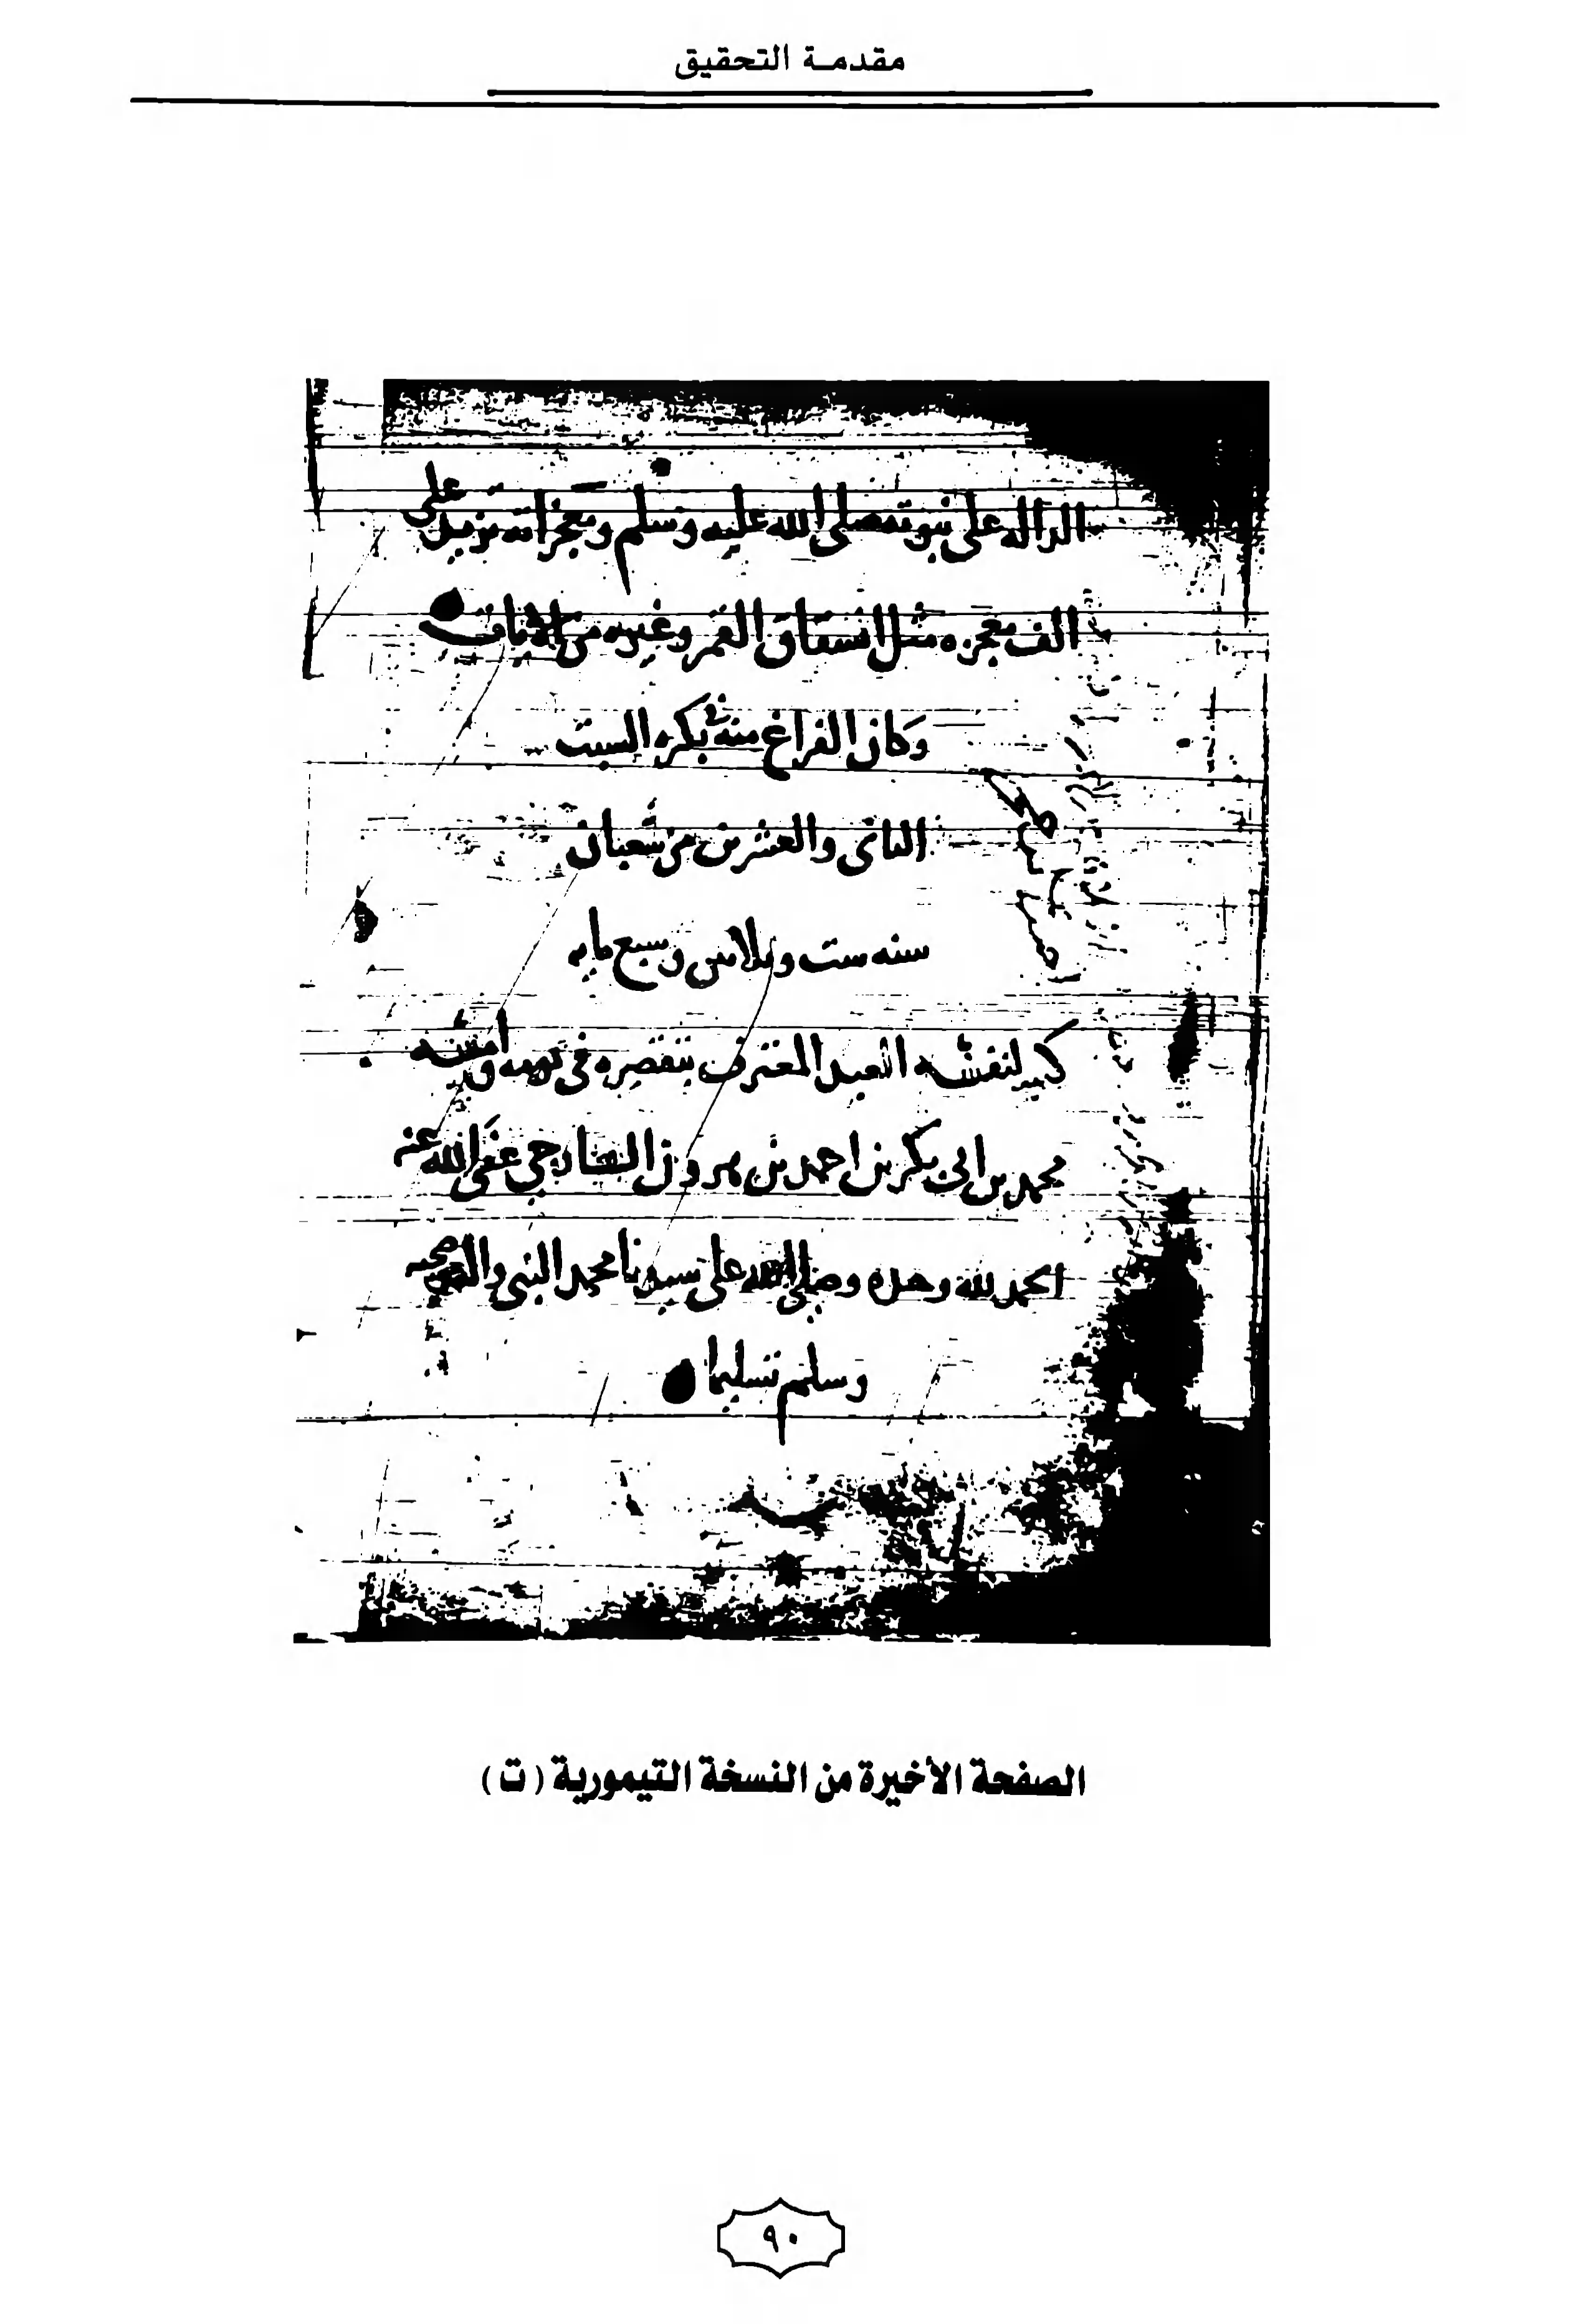 مقدمة التحقيق
الداله على نبوته صلى الله عليه وسلم ومعجزاته تزيد على
الف معجزه مثل انشقاق القمر وغيره من الايات
وكان الفراغ منه في بكره السبت
الثانى والعشرين من شعبان
سنه ست وثلاثين وسبع مايه
لنفسه العبد المعترف بتقصيره في يومه وامسه
محمد بن ابى بكر بن احمد بن عفى الله عنه
الحمد لله وحده وصلى الله على سيدنا محمد النبي واله وصحبه
وسلم تسليما
الصفحة الأخيرة من النسخة التيمورية (ت)
٩٠